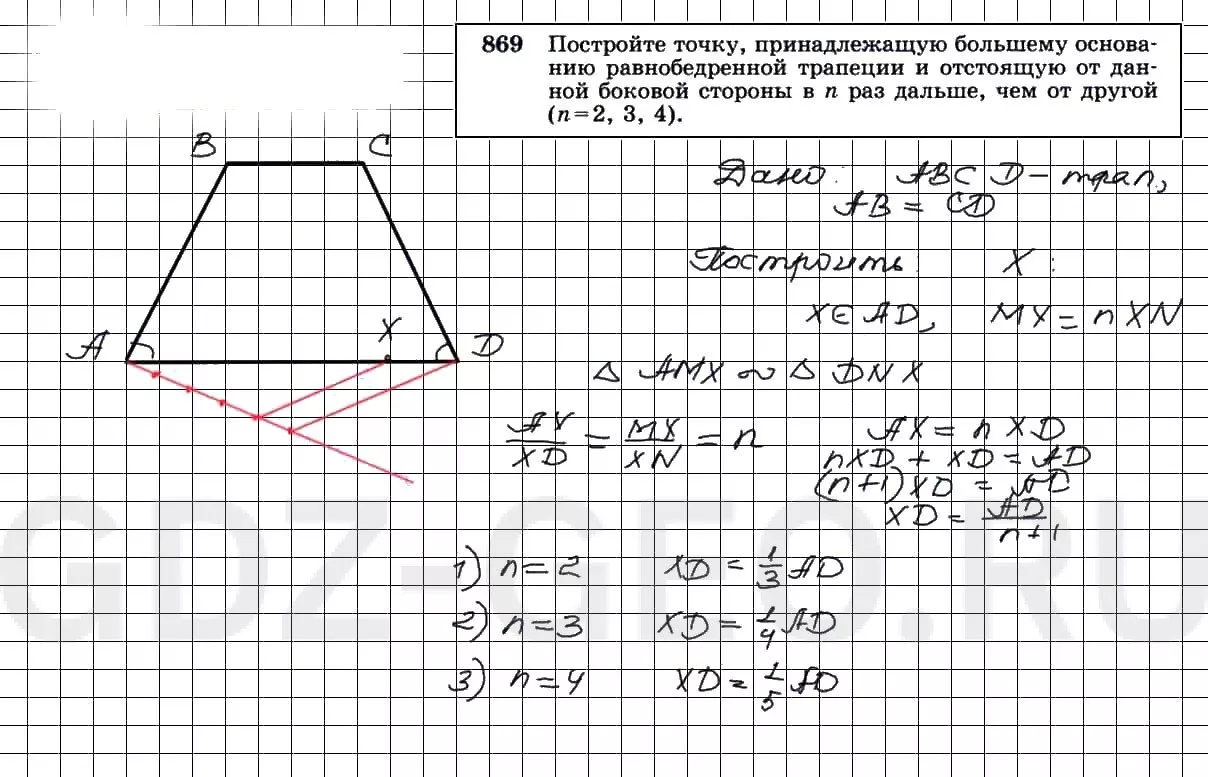 869 Постройте точку, принадлежащую большему основа-
нию равнобедренной трапеции и отстоящую от дан-
ной боковой стороны в n раз дальше, чем от другой
(n=2, 3, 4).
B C
Дано: ABCD – трап.,
AB = CD
Построить: X:
X ∈ AD, MX = n XN
A X D
△ AMX ∼ △ DNX
AX/XD = MX/XN = n
AX = n XD
nXD + XD = AD
(n+1)XD = AD
XD = AD/n+1
GDZ-GEO.RU
1) n = 2 XD = 1/3 AD
2) n = 3 XD = 1/4 AD
3) n = 4 XD = 1/5 AD